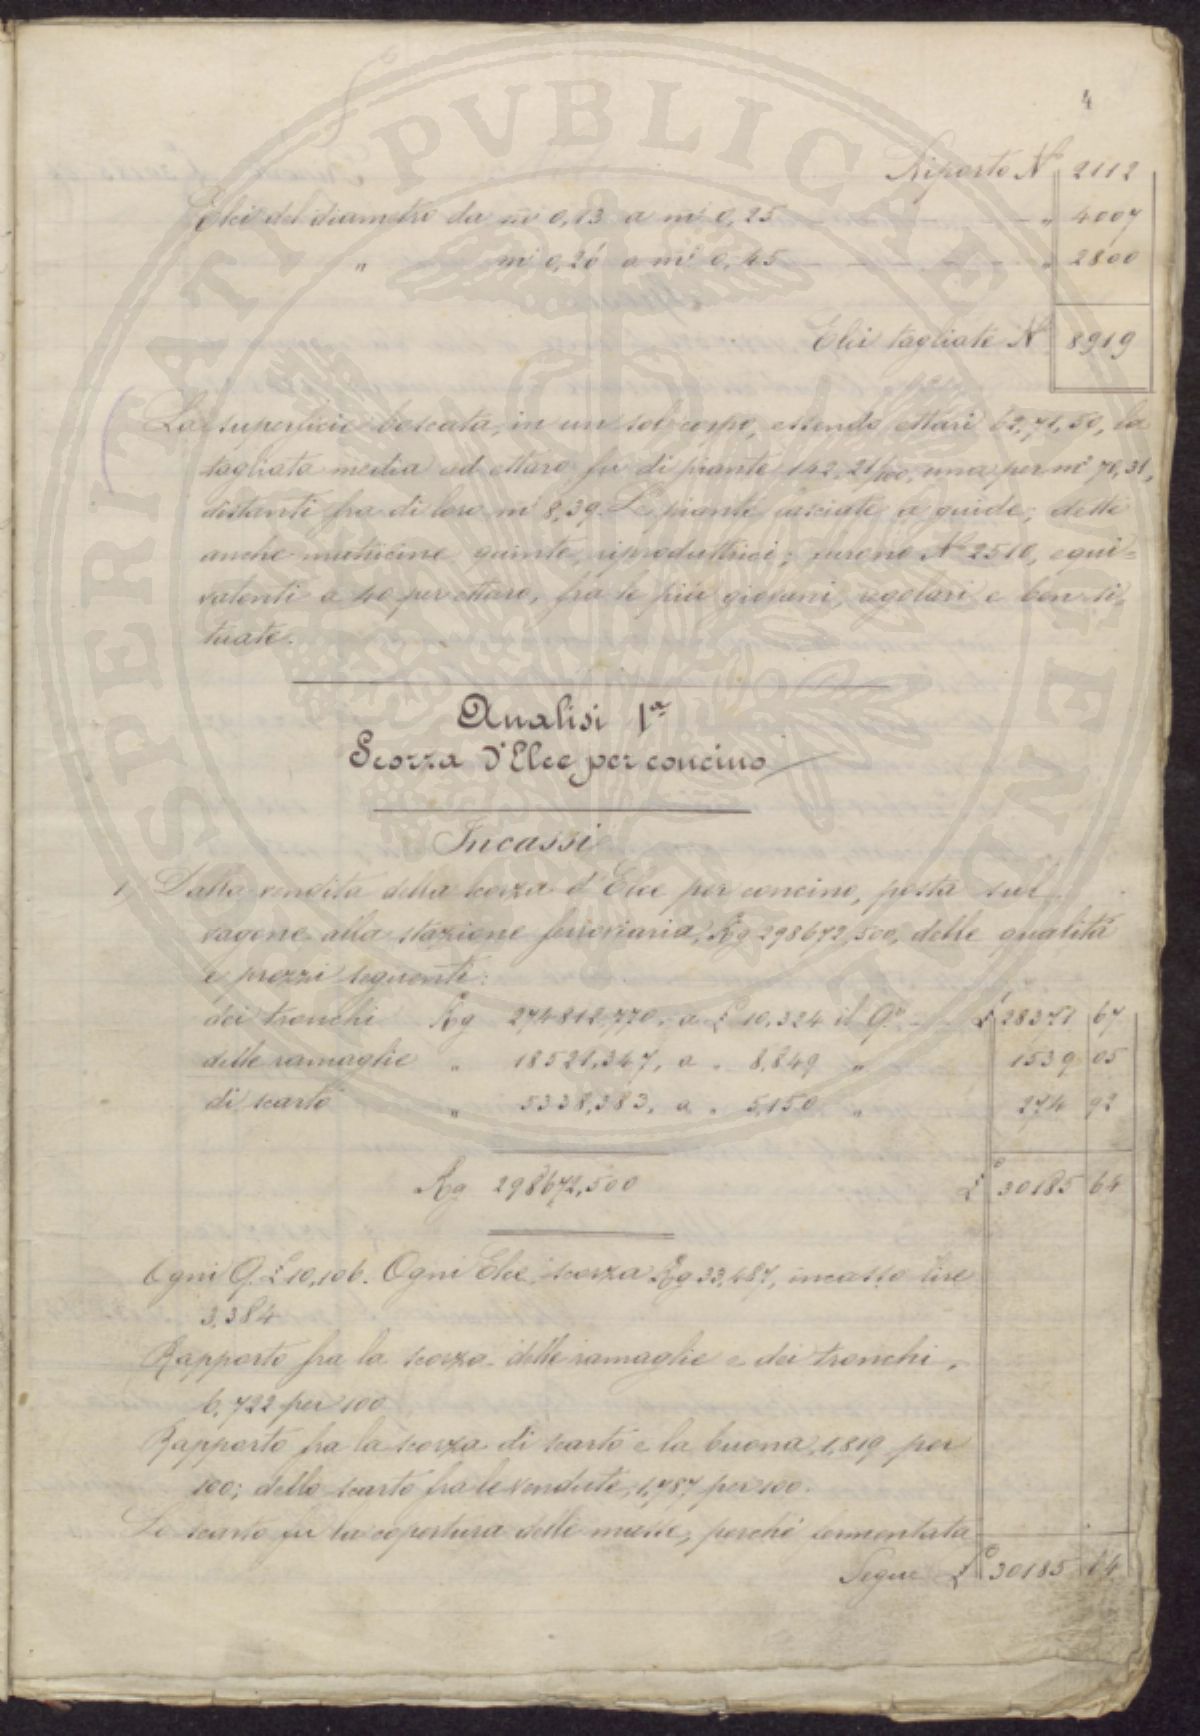 4
Riporto N° 2112
Elci del diametro da m 0,13 a m 0,25 " 4007
" m 0,26 a m 0,45 " 2800
Elci tagliate N° 8919
La superficie boscata, in un sol corpo, essendo ettari 62,71,50, la
tagliata media ad ettaro fu di piante 142,21/100, una per m² 70,31,
distanti fra di loro m 8,39. Le piante lasciate a guide, dette
anche matricine guinte, riproduttrici, furono N° 2510, equi=
valenti a 40 per ettaro, fra le più giovani, regolari e ben si=
tuate.
Analisi 1ª
Scorza d'Elce per concino
Incassi
1/ Dalla vendita della scorza d'Elce per concino, posta sul
vagone alla stazione ferroviaria, Kg 298672,500, delle qualità
e prezzi seguenti:
dei tronchi Kg 274812,770, a £ 10,324 il Q.le £ 28371 67
delle ramaglie " 18521,347, a " 8,849 " 1539 05
di scarto " 5338,383, a " 5,150 " 274 92
Kg 298672,500 £ 30185 64
Ogni Q. £ 10,106. Ogni Elce, scorza Kg 33,487, incasso lire
3,384
Rapporto fra la scorza delle ramaglie e dei tronchi,
6,722 per 100
Rapporto fra la scorza di scarto e la buona, 1,819 per
100; dello scarto fra le vendute, 1,787 per 100.
Lo scarto fu la copertura delle masse, perchè fermentata
Segue £ 30185 64
PROSPERITATI PVBLICAE AVGENDAE